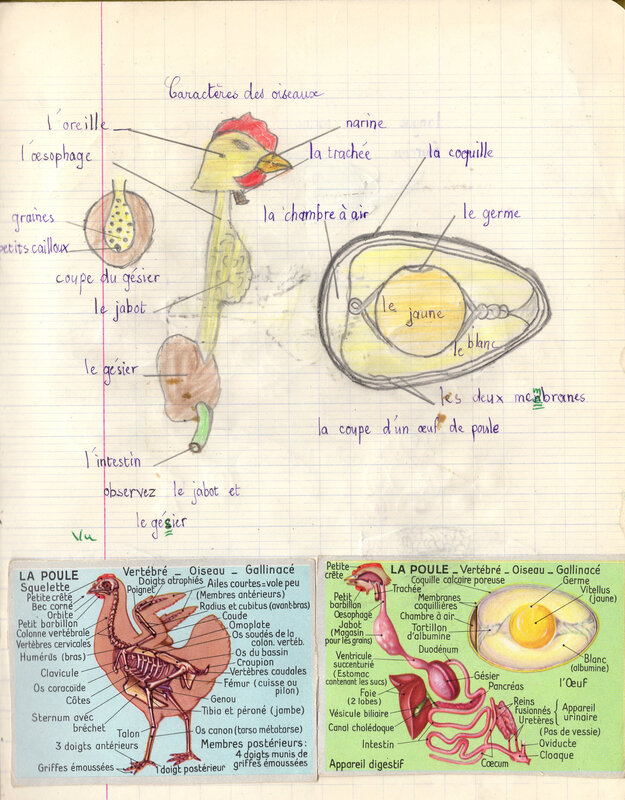 Caractères des oiseaux
l'oreille
narine
l'œsophage
la trachée
la coquille
la chambre à air
le germe
graines
petits cailloux
coupe du gésier
le jabot
le jaune
le blanc
le gésier
les deux membranes
la coupe d'un œuf de poule
l'intestin
observez le jabot et
le gésier
Vu
LA POULE
Vertébré _ Oiseau _ Gallinacé
Squelette
Petite crête
Bec corné
Orbite
Petit barbillon
Colonne vertébrale
Vertèbres cervicales
Humérus (bras)
Clavicule
Os coracoïde
Côtes
Sternum avec
bréchet
Talon
3 doigts antérieurs
Griffes émoussées
1 doigt postérieur
Doigts atrophiés
Poignet
Ailes courtes=vole peu
(Membres antérieurs)
Radius et cubitus (avant bras)
Coude
Omoplate
Os soudés de la
colon. vertéb.
Os du bassin
Croupion
Vertèbres caudales
Fémur (cuisse ou
pilon)
Genou
Tibia et péroné (jambe)
Os canon (tarso métatarse)
Membres postérieurs:
4 doigts munis de
griffes émoussées
LA POULE _ Vertébré _ Oiseau _ Gallinacé
Petite
crête
Petit
barbillon
Œsophage
Jabot
(Magasin
pour les grains)
Ventricule
succenturié
(Estomac
contenant les sucs)
Foie
(2 lobes)
Vésicule biliaire
Canal cholédoque
Intestin
Appareil digestif
Trachée
Coquille calcaire poreuse
Membranes
coquillières
Chambre à air
Tortillon
d'albumine
Duodénum
Germe
Vitellus
(jaune)
Blanc
(albumine)
l'Œuf
Gésier
Pancréas
Reins
fusionnés
Uretères
Appareil
urinaire
(Pas de vessie)
Oviducte
Cloaque
Cæcum